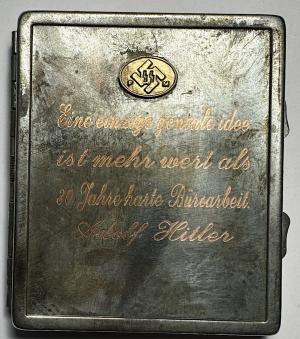 Eine einzige geniale idee
ist mehr wert als
30 Jahre harte Büroarbeit.
Adolf Hitler